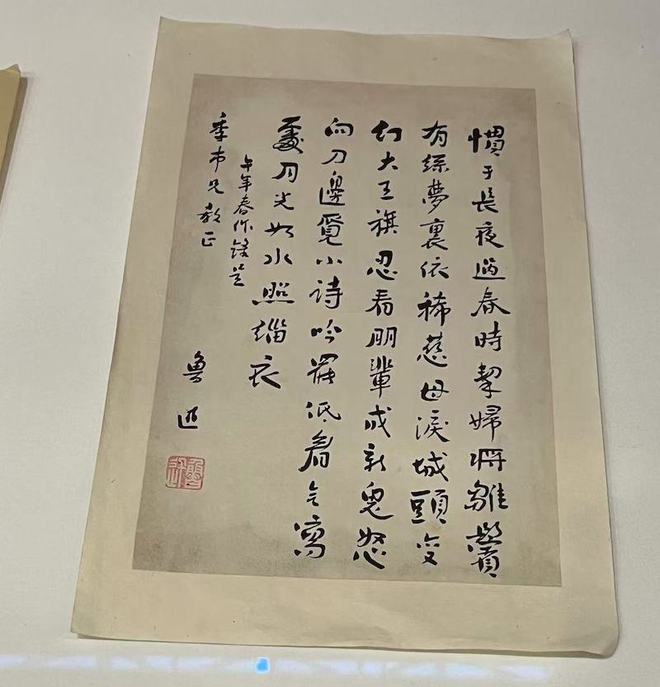 慣于長夜過春時挈婦將雛鬢
有絲夢裏依稀慈母淚城頭变
幻大王旗忍看朋輩成新鬼怒
向刀邊覓小詩吟罷低眉无寫
處月光如水照緇衣
午年春作錄呈
季巿兄教正
魯迅
魯迅